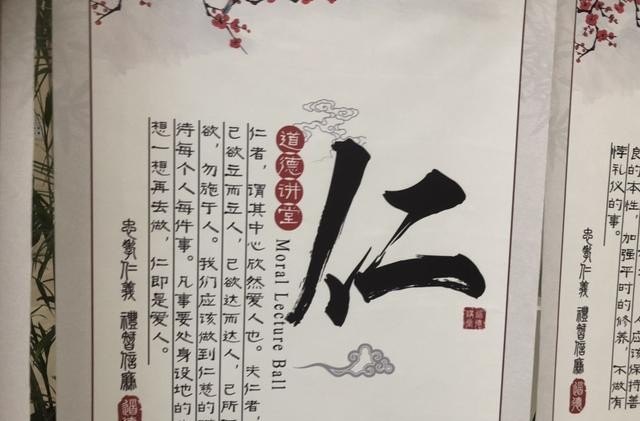 仁
道德讲堂
Moral Lecture Ball
仁者，谓其中心欣然爱人也。夫仁者，
己欲立而立人，己欲达而达人，己所
欲，勿施于人。我们应该做到仁慈的
待每个人每件事。凡事要处身设地的
想一想再去做，仁即是爱人。
忠孝仁義 禮智信廉
道德
道德讲堂
良的本性
人应该保持善
悖礼仪的事。
加强平时的修养，不做有
忠孝仁義 禮智信廉
道德